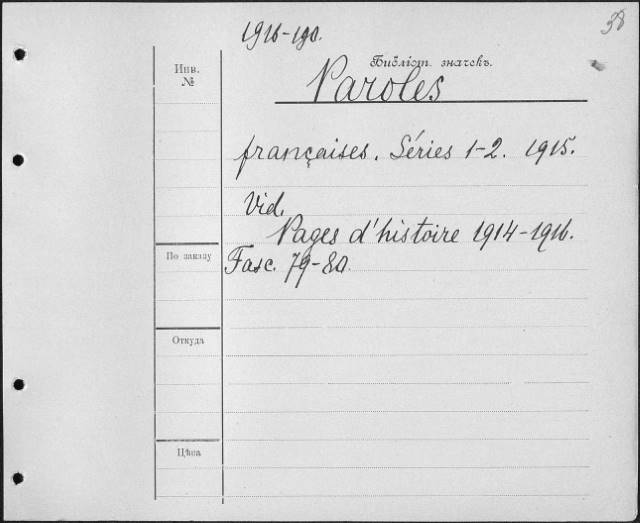 38
1916-190.
Инв.
№
Библіот. значекъ.
Paroles
françaises. Séries 1-2. 1915.
Vid.
Pages d'histoire 1914-1916.
По заказу
Fasc. 79-80.
Откуда
Цѣна